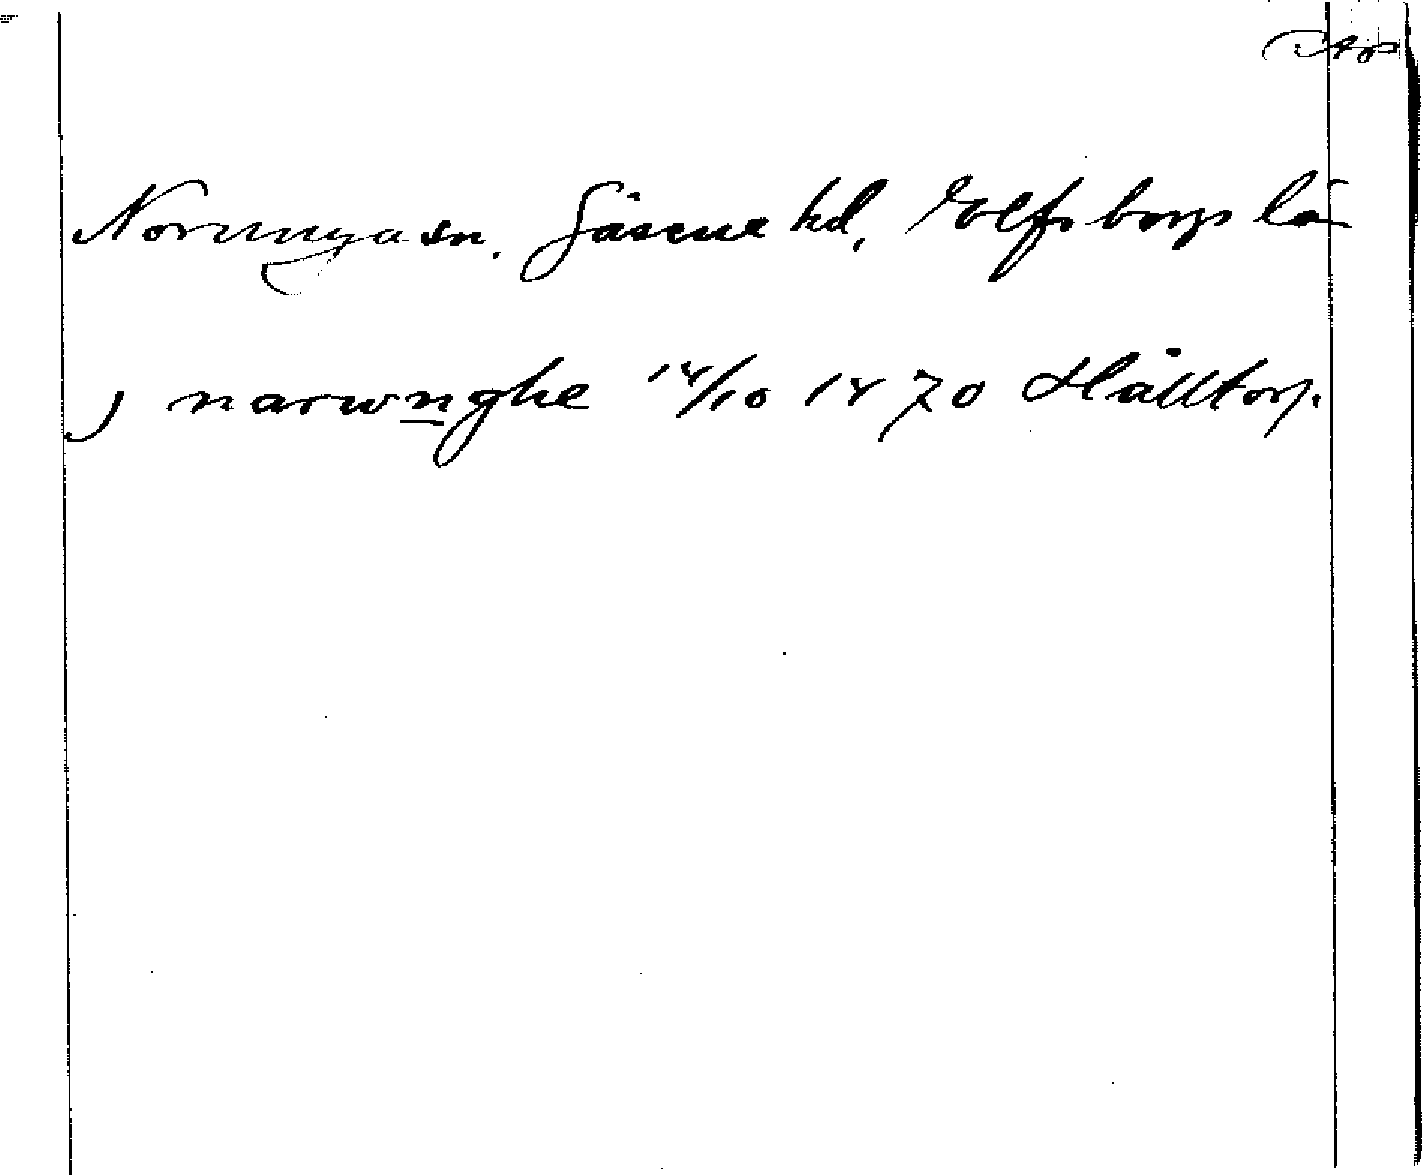 Norunga sn. Gäsene hd, Elfsborgs län
J narwnghe 14/10 1470 Hälltorp.